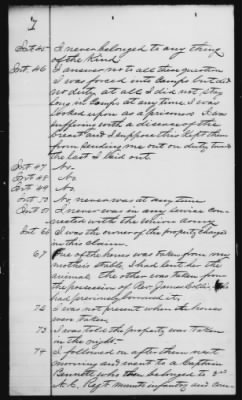 7
Int 45 I never belonged to any thing
of the Kind
Int. 46 I answer no to all then question
I was forced into Camps but did
no duty at all I did not stay
long in Camps at any time I was
looked upon as a prisoner. I was
suffering with a disease of the
breast and I suppose this kept them
from sending me out on duty
the last I laid out.
Int 47 No.
Int 48 No.
Int 49 No.
Int. 50 No, never was at any time
Int 51 I never was in any service con-
nected with the Union Army
Int 66 I was the owner of the property charged
in this claim.
67 One of the horses was taken from my
mothers stable, I had lent her the
animal the other was taken from
the possession of Rev. James he
had previously borrowed it,
72 I was not present when the horses
were taken
73 I was told the property was taken
in the night-
74 I followed on after them next
morning and went to a Captain
Bennett who then belonged to 3rd
N.C. Regt mounted infantry and